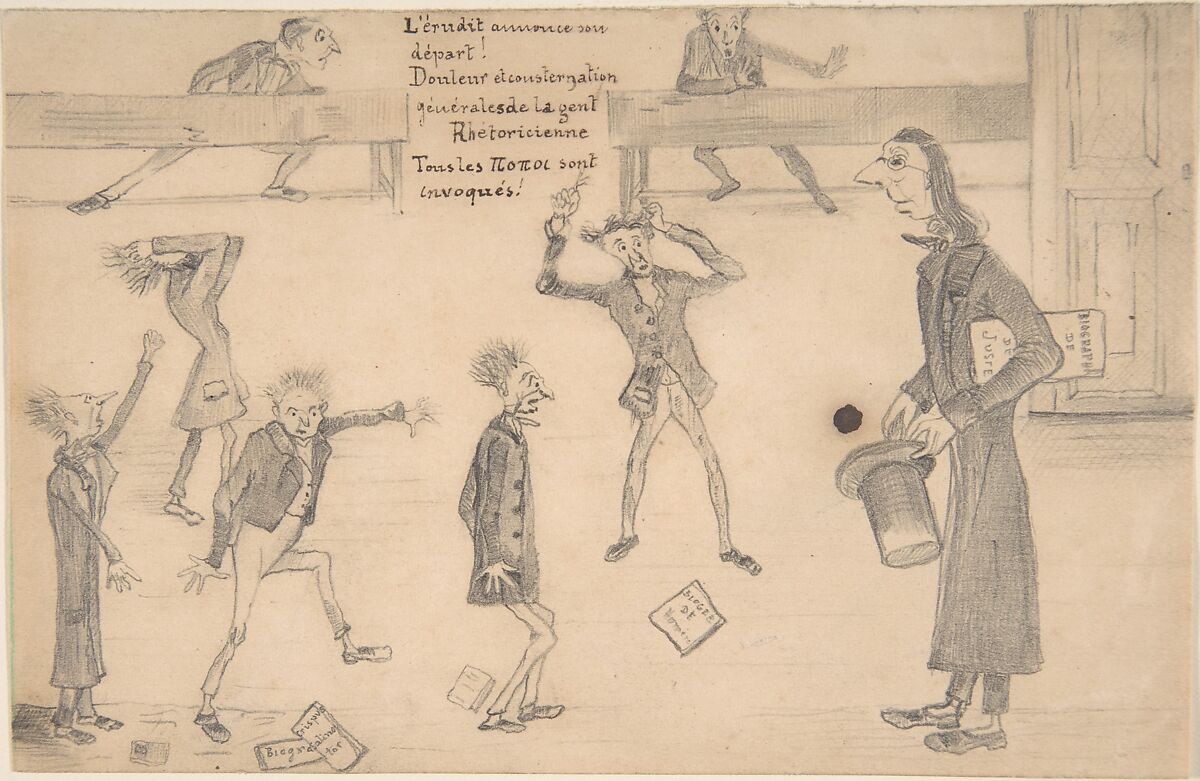 L'érudit annonce son
départ!
Douleur et consternation
générales de la gent
Rhétoricienne
Tous les ποποι sont
invoqués!
BIOGRAPH
DE
DE
Jusre
BIOGRE
DE
Biogr